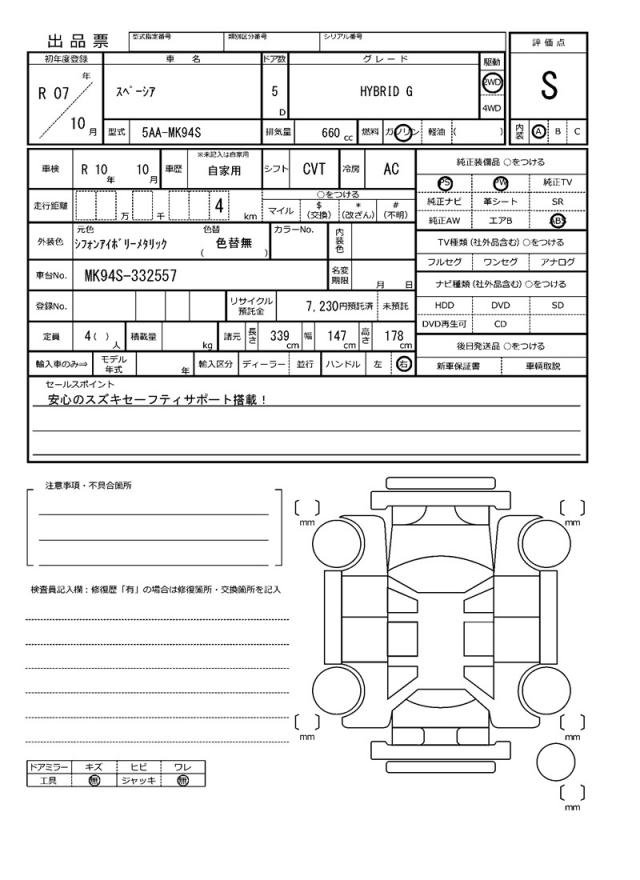 出品票 型式指定番号 類別区分番号 シリアル番号
評価点
初年度登録 車名 ドア数 グレード 駆動
R 07 年 スペーシア 5 D HYBRID G 2WD S
4WD
10 月 型式 5AA-MK94S 排気量 660 cc 燃料 ガソリン 軽油 ( ) 内装 A B C
車検 R 10 年 10 月 車歴 ※未記入は自家用 自家用 シフト CVT 冷房 AC 純正装備品 ○をつける
PS PW 純正TV
走行距離 万 千 4 km ○をつける 純正ナビ 革シート SR
マイル $ (交換) * (改ざん) # (不明) 純正AW エアB ABS
外装色 元色 シフォンアイボリーメタリック 色替 ( 色替無 ) カラーNo. 内装色 TV種類 (社外品含む) ○をつける
フルセグ ワンセグ アナログ
車台No. MK94S-332557 名変期限 月 日 ナビ種類 (社外品含む) ○をつける
登録No. リサイクル預託金 7,230円預託済 未預託 HDD DVD SD
DVD再生可 CD
定員 4 ( ) 人 積載量 kg 諸元 長さ 339 cm 幅 147 cm 高さ 178 cm 後日発送品 ○をつける
輸入車のみ⇒ モデル年式 年 輸入区分 ディーラー 並行 ハンドル 左 右 新車保証書 車輌取説
セールスポイント
安心のスズキセーフティサポート搭載！
注意事項・不具合箇所
mm mm
検査員記入欄：修復歴「有」の場合は修復箇所・交換箇所を記入
mm mm
ドアミラー キズ ヒビ ワレ
工具 無 ジャッキ 無
mm